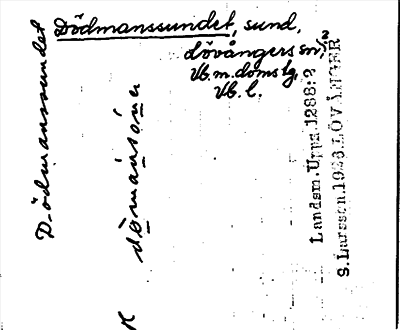 Dödmanssundet, sund,
Lövångers sn,
Vb. m. doms lg,
Vb. l.
Dödmanssundet
Landsm. Upps. 1288:2
S. Larsson. 1923. LÖVÅNGER